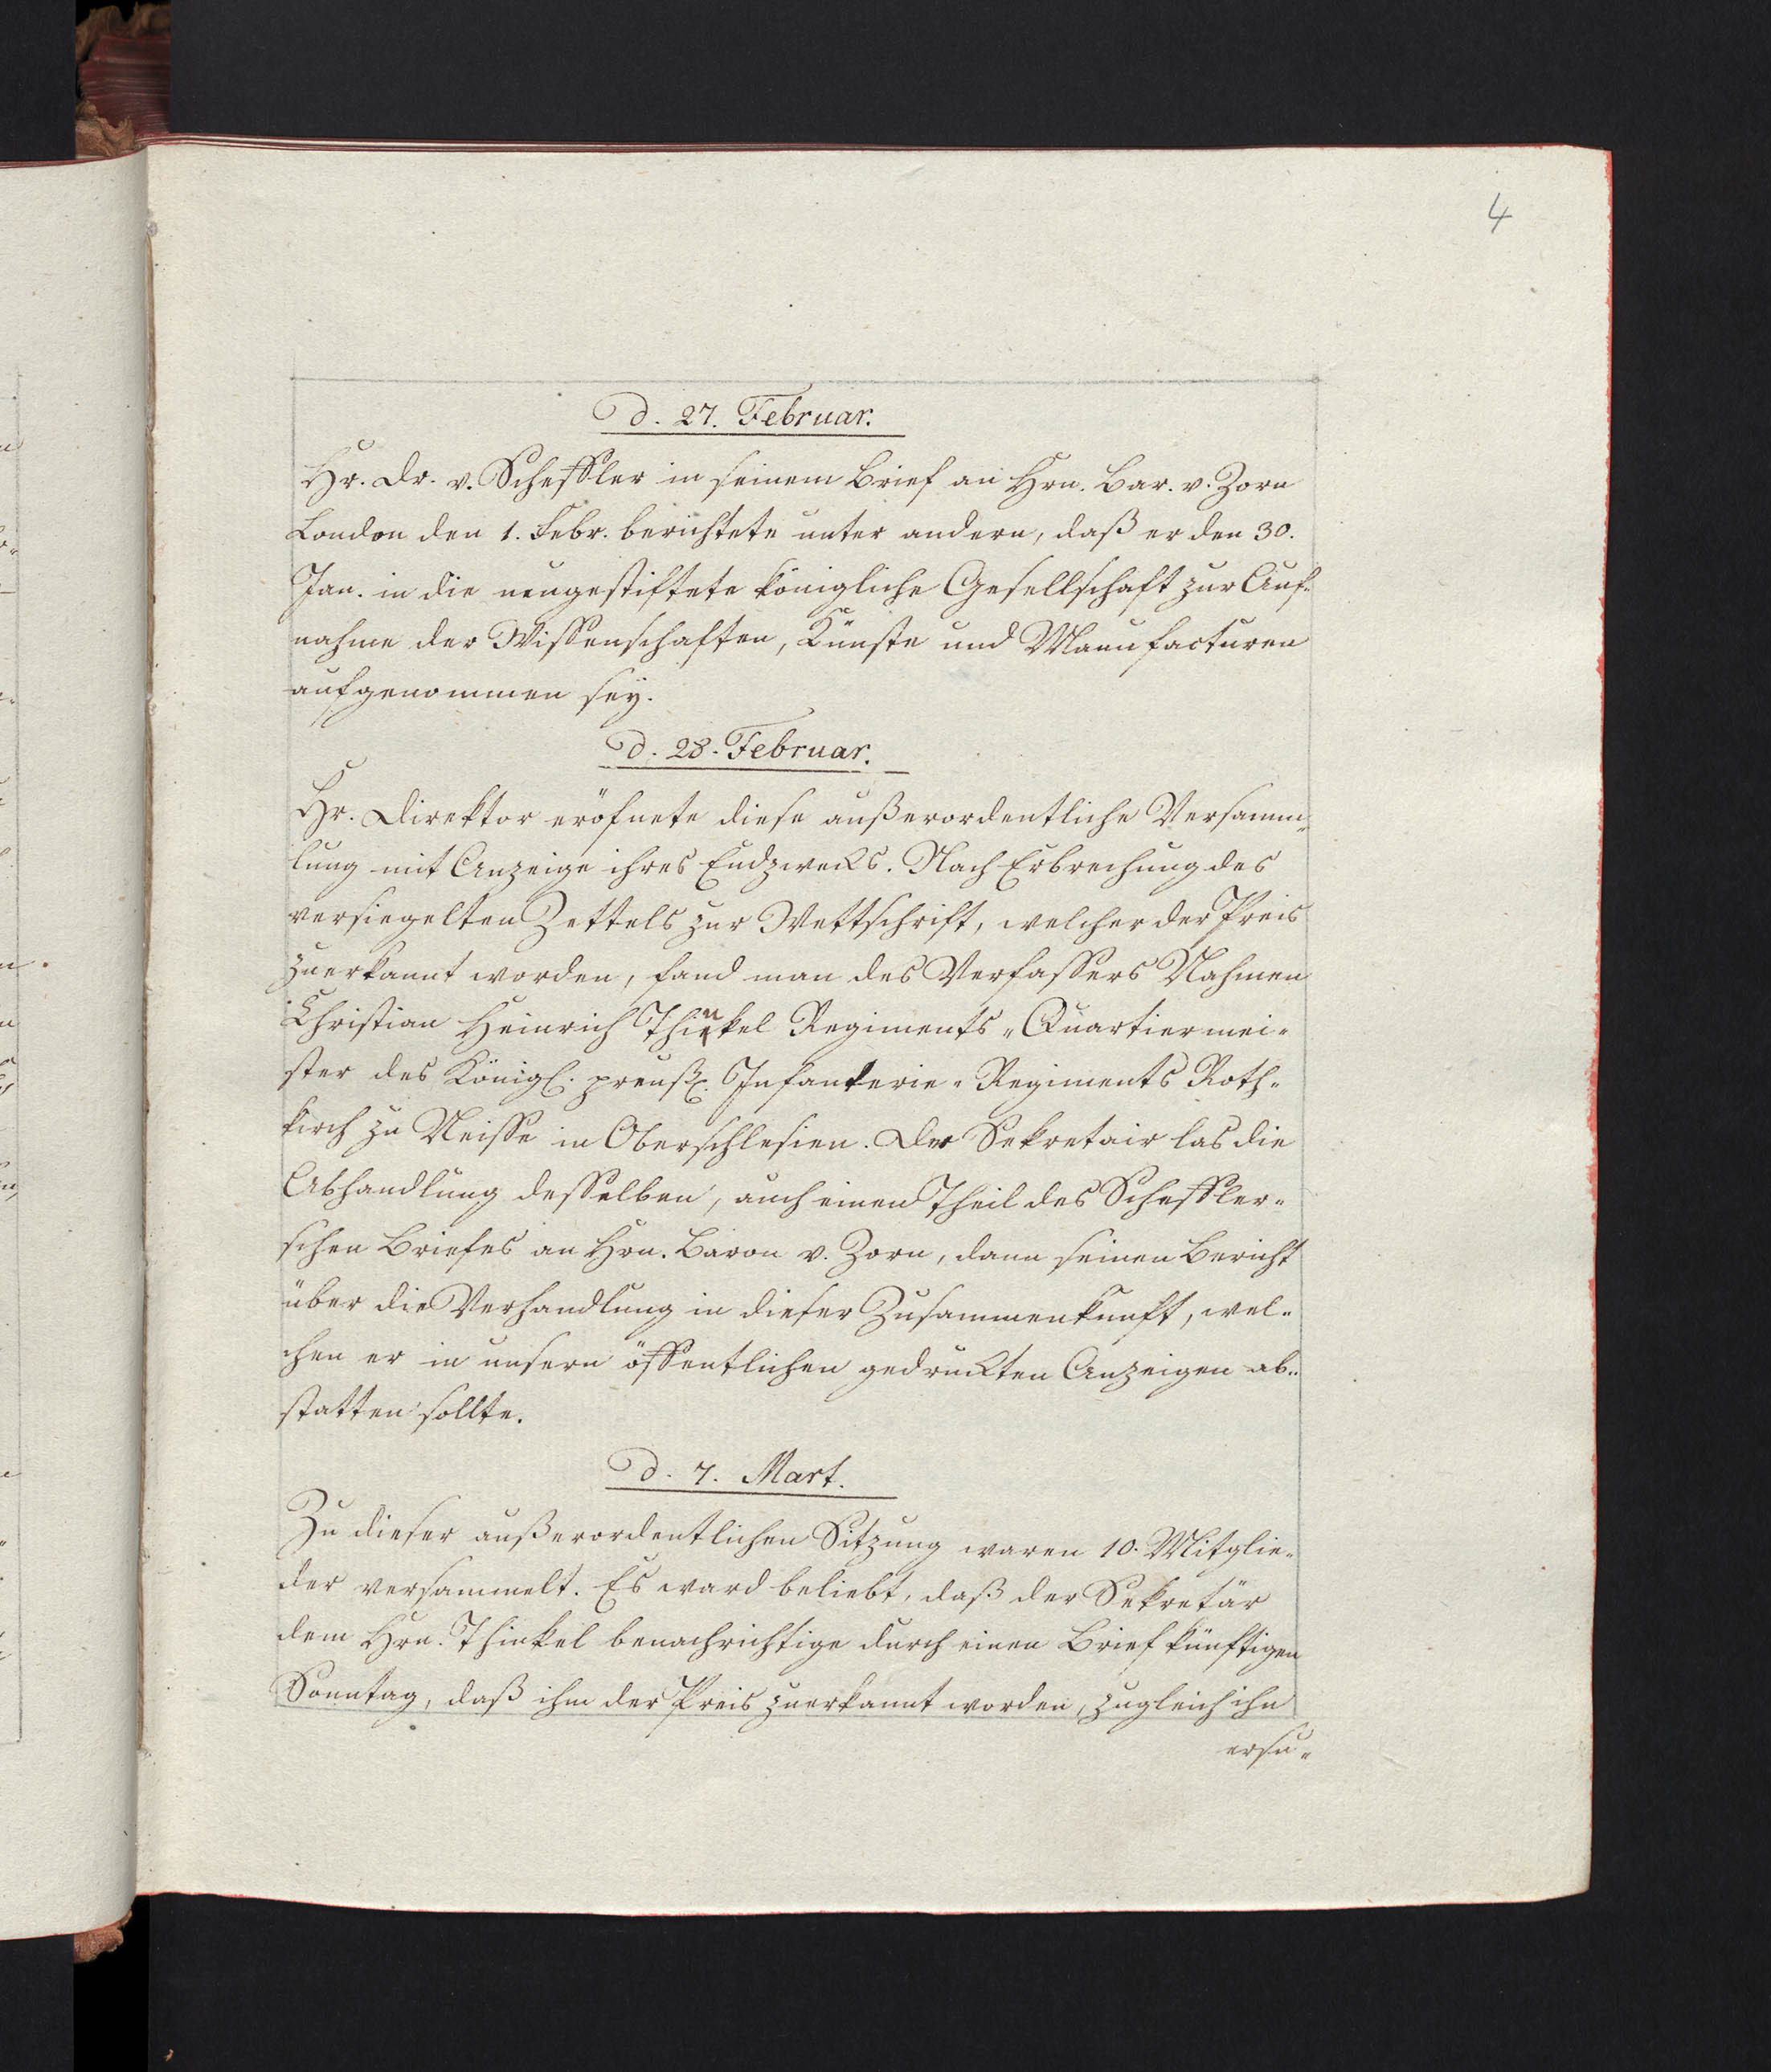 4
d. 27. Februar.
Hr. Dr. v. Scheffler in seinem Brief an Hrn. Bar. v. Zorn
London den 1. Febr. berichtete unter andern, daß er den 30.
Jan. in die neugestiftete königliche Gesellschaft zur Auf-
nahme der Wissenschaften, Künste und Manufacturen
aufgenommen sey.
d. 28. Februar.
Hr. Direktor eröfnete diese außerordentliche Versamm-
lung mit Anzeige ihres Endzwecks. Nach Erbrechung des
versiegelten Zettels zur Wettschrift, welcher der Preis
zuerkannt worden, fand man des Verfassers Nahmen
Christian Heinrich Thinkel Regiments-Quartiermei-
ster des Königl. preuß. Infanterie-Regiments Roth-
kirch zu Neisse in Oberschlesien. Der Sekretair las die
Abhandlung desselben, auch einen Theil des Scheffler-
schen Briefes an Hrn. Baron v. Zorn, dann seinen Bericht
über die Verhandlung in dieser Zusammenkunft, wel-
chen er in unsern öffentlichen gedruckten Anzeigen ab-
statten sollte.
d. 7. Mart.
Zu dieser außerordentlichen Sitzung waren 10. Mitglie-
der versammelt. Es ward beliebt, daß der Sekretär
dem Hrn. Thinkel benachrichtige durch einen Brief künftigen
Sonntag, daß ihm der Preis zuerkannt worden, zugleich ihn
ersu-